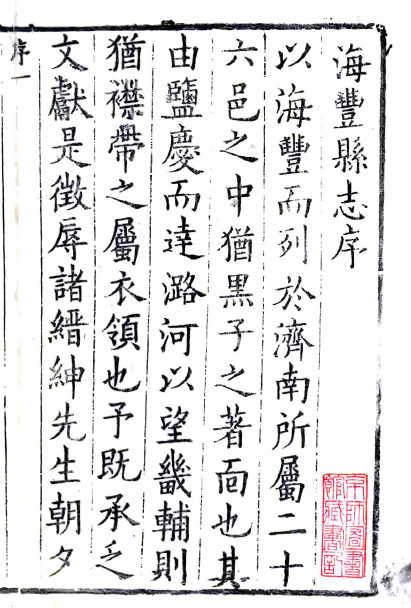 海豐縣志序
以海豐而列於濟南所屬二十
六邑之中猶黑子之著面也其
由鹽慶而達潞河以望畿輔則
猶襟帶之屬衣領也予旣承乏
文獻是徵辱諸縉紳先生朝夕
序一
京師圖書館藏書記